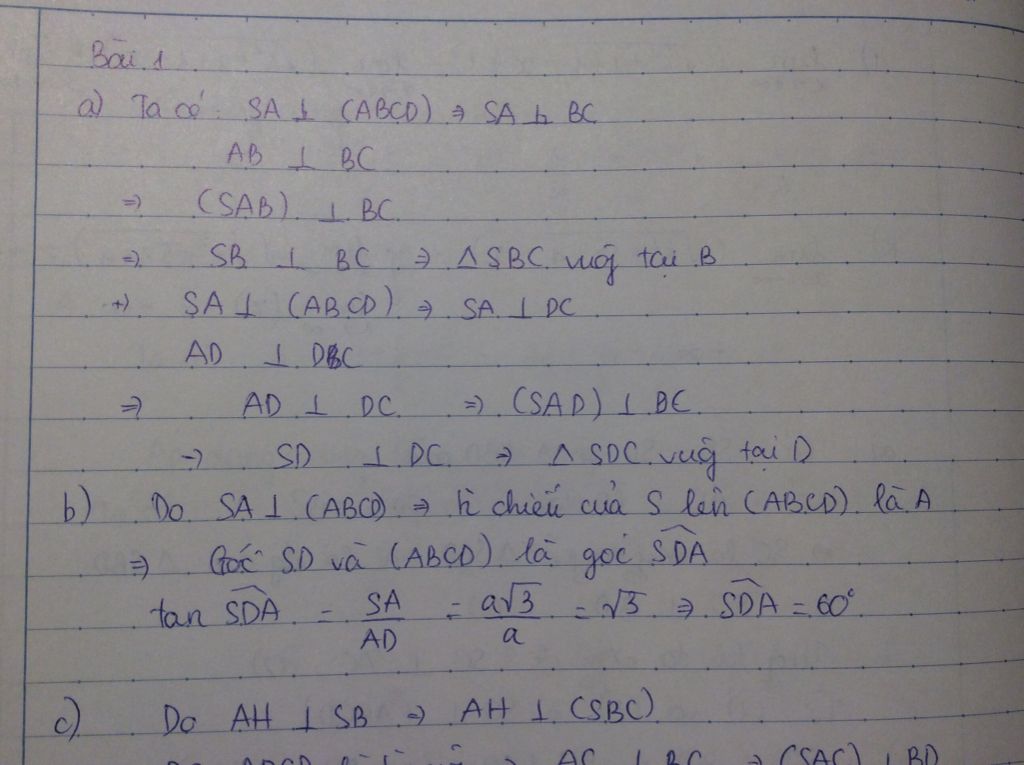 Bài 1
a) Ta có: SA ⊥ (ABCD) ⇒ SA ⊥ BC
AB ⊥ BC
⇒ (SAB) ⊥ BC
⇒ SB ⊥ BC ⇒ △SBC vuôg tại B
+) SA ⊥ (ABCD) ⇒ SA ⊥ DC
AD ⊥ DC
⇒ AD ⊥ DC ⇒ (SAD) ⊥ BC
→ SD ⊥ DC ⇒ △ SDC vuôg tại D
b) Do SA ⊥ (ABCD) ⇒ h̀ chiếu của S lên (ABCD) là A
⇒ Góc SD và (ABCD) là góc \widehat{SDA}
tan \widehat{SDA} = SA/AD = a√3/a = √3 ⇒ \widehat{SDA} = 60°
c) Do AH ⊥ SB ⇒ AH ⊥ (SBC)
ABCD AC ⊥ BC ⇒ (SAC) ⊥ BD